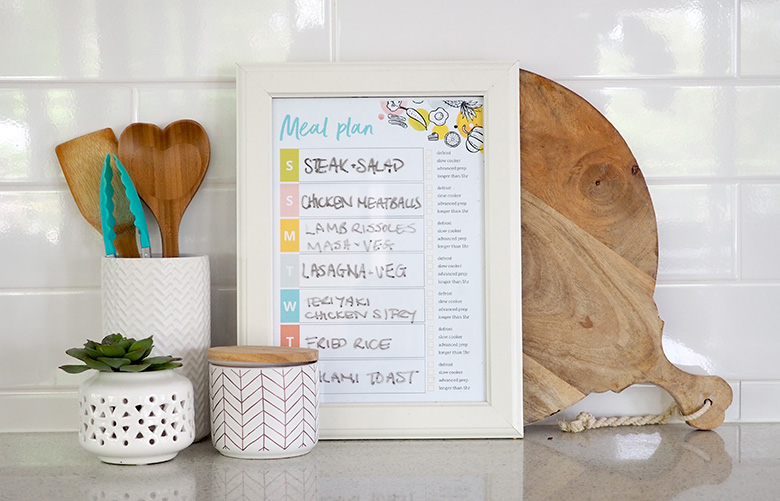 Meal plan
S STEAK + SALAD
defrost
slow cooker
advanced prep
longer than 1hr
S CHICKEN MEATBALLS
defrost
slow cooker
advanced prep
longer than 1hr
M LAMB RISSOLES
MASH + VEG
defrost
slow cooker
advanced prep
longer than 1hr
T LASAGNA + VEG
defrost
slow cooker
advanced prep
longer than 1hr
W TERIYAKI
CHICKEN STFRY
defrost
slow cooker
advanced prep
longer than 1hr
T FRIED RICE
defrost
slow cooker
advanced prep
longer than 1hr
TOAST
defrost
slow cooker
advanced prep
longer than 1hr